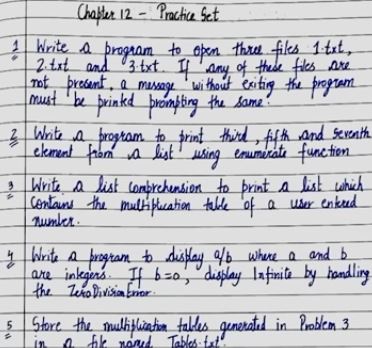 Chapter 12 - Practice Set
1 Write a program to open three files 1.txt,
2.txt and 3.txt. If any of these files are
not present, a message without exiting the program
must be printed prompting the same.
2 Write a program to print third, fifth and seventh
element from a list using enumerate function
3 Write a list comprehension to print a list which
contains the multiplication table of a user entered
number.
4 Write a program to display a/b where a and b
are integers. If b=0, display Infinite by handling
the ZeroDivisionError.
5 Store the multiplication tables generated in Problem 3
in a file named Tables.txt.